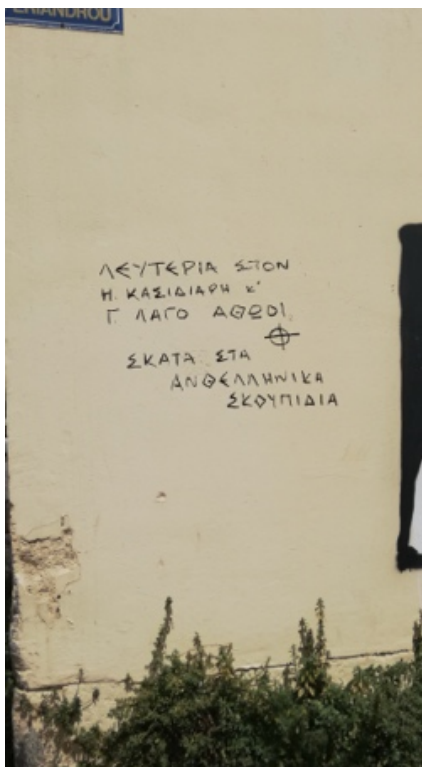 ERIANDROU
ΛΕΥΤΕΡΙΑ ΣΤΟΝ
Η. ΚΑΣΙΔΙΑΡΗ κ'
Γ. ΛΑΓΟ ΑΘΩΟΙ
ΣΚΑΤΑ ΣΤΑ
ΑΝΘΕΛΛΗΝΙΚΑ
ΣΚΟΥΠΙΔΙΑ